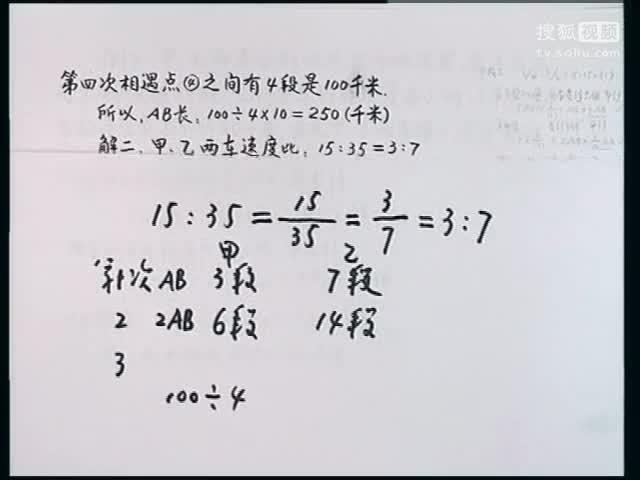 搜狐视频
tv.sohu.com
第四次相遇点④之间有4段是100千米.
所以,AB长,100÷4×10=250(千米)
解二、甲、乙两车速度比,15:35=3:7
15:35=15/35=3/7=3:7
甲 乙
第1次 AB 3段 7段
2 2AB 6段 14段
3
100÷4